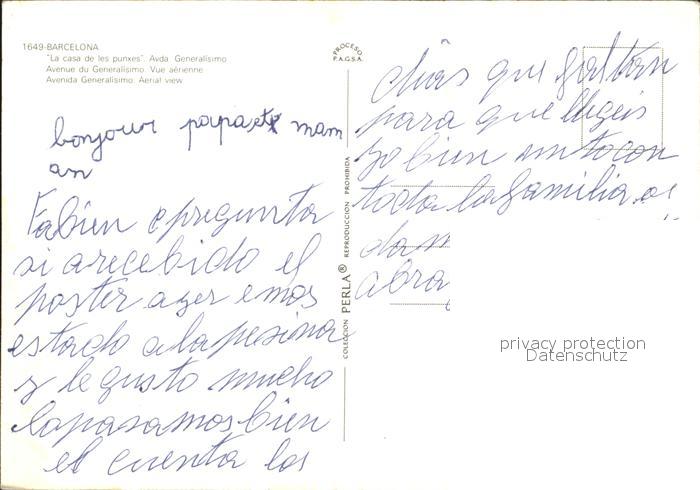 1649-BARCELONA
"La casa de les punxes". Avda Generalísimo
Avenue du Generalísimo. Vue aérienne
Avenida Generalísimo. Aerial view
PROCESO
P.A.G.S.A.
COLECCION PERLA® REPRODUCCION PROHIBIDA
bonjour papa et mam
an
Fabien e pregunta
si a recebido el
poster ayer emos
estado a la pesina
y le gusto mucho
lo pasamos bien
el cuenta los
dias que faltan
para que llegeis
yo bien con
toda la familia os
dan
abra
privacy protection
Datenschutz